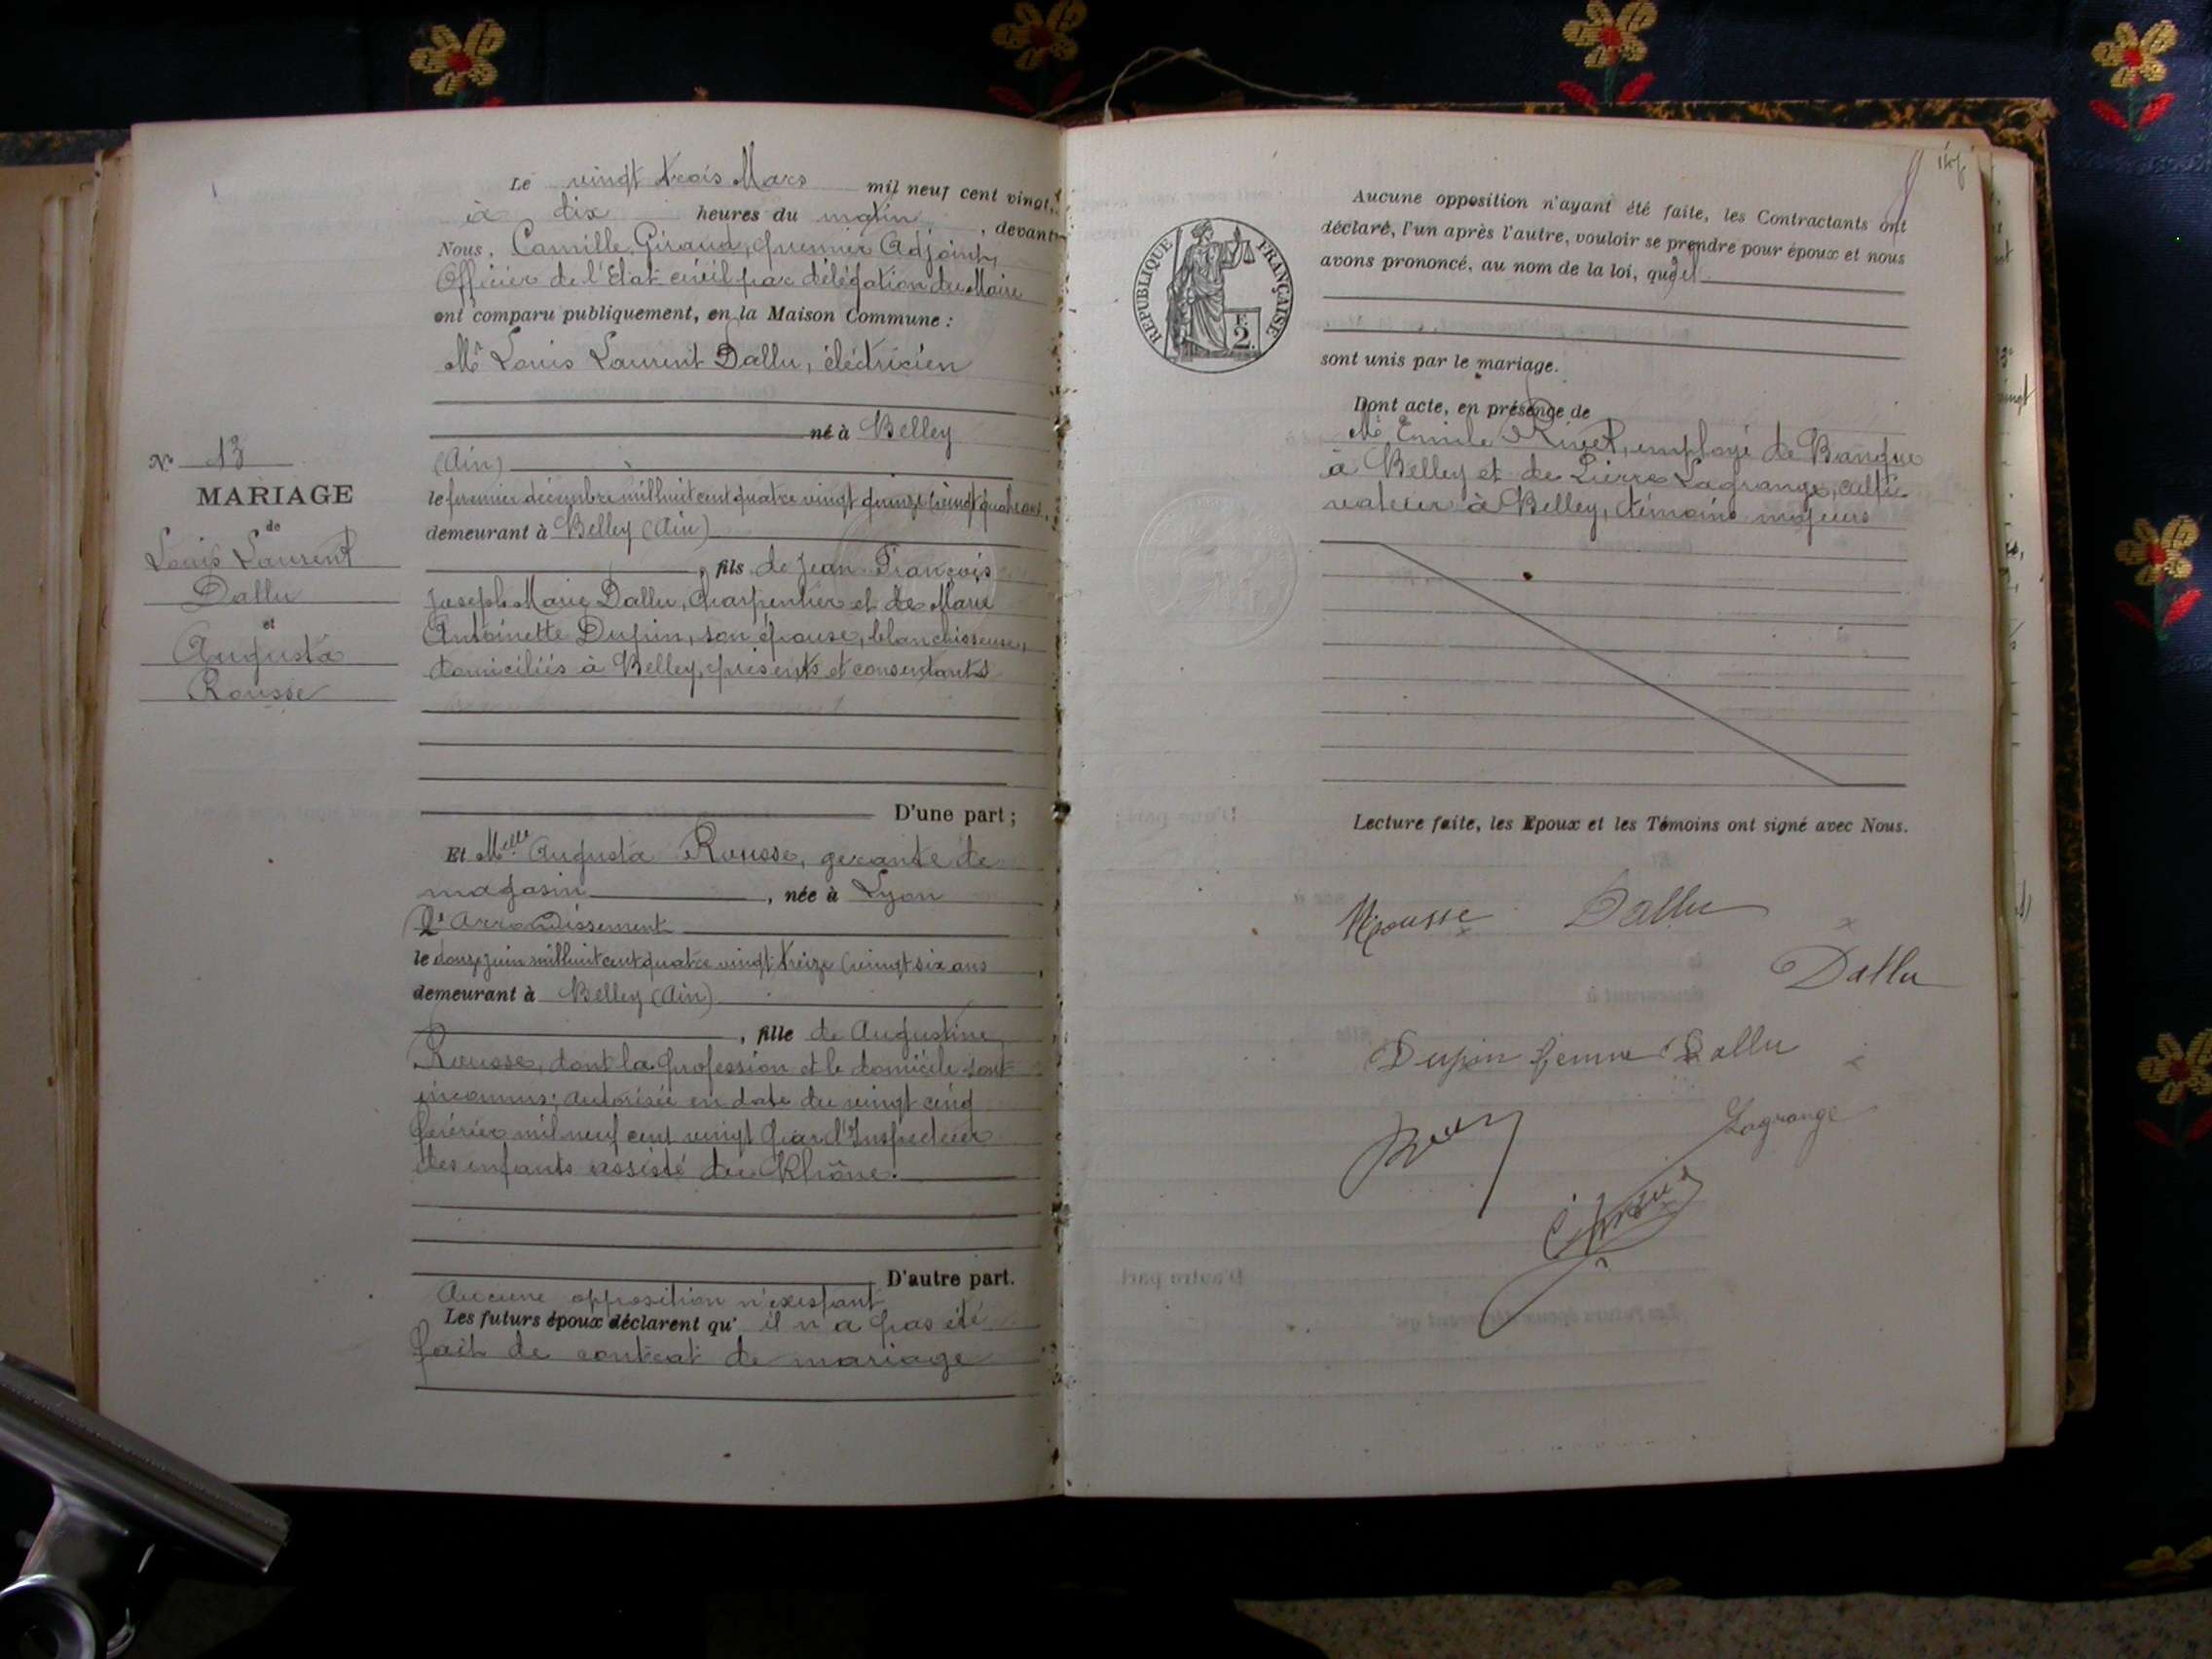 Le vingt trois Mars mil neuf cent vingt,
à dix heures du matin, devant
Nous, Camille Giraud, premier Adjoint,
Officier de l'Etat civil par délégation du Maire
ont comparu publiquement, en la Maison Commune :
Mr Louis Laurent Dallu, éléctricien
né à Belley
(Ain)
le premier décembre mil huit cent quatre vingt quinze (vingt quatre ans,
demeurant à Belley (Ain)
, fils de Jean François
Joseph Marie Dallu, charpentier et de Marie
Antoinette Dupin, son épouse, blanchisseuse,
domiciliés à Belley, présents et consentants
D'une part ;
Nº 13
MARIAGE
de
Louis Laurent
Dallu
et
Augusta
Rousse
Et Melle Augusta Rousse, gerante de
magasin, née à Lyon
2e Arrondissement
le douze juin mil huit cent quatre vingt treize (vingt six ans
demeurant à Belley (Ain)
, fille de Augustine
Rousse, dont la profession et le domicile sont
inconnus ; autorisée en date du vingt cinq
février mil neuf cent vingt par l'Inspecteur
des enfants assisté du Rhône.
D'autre part.
Aucune opposition n'existant
Les futurs époux déclarent qu' il n'a pas été
fait de contrat de mariage
Aucune opposition n'ayant été faite, les Contractants ont
déclaré, l'un après l'autre, vouloir se prendre pour époux et nous
avons prononcé, au nom de la loi, qu'ils
RÉPUBLIQUE FRANÇAISE
2F
sont unis par le mariage.
Dont acte, en présence de
Mr Emile Rivet, employé de Banque
à Belley et de Pierre Lagrange, culti-
vateur à Belley, témoins majeurs
Lecture faite, les Epoux et les Témoins ont signé avec Nous.
Rousse Dallu
Dallu
Dupin femme Dallu
Lagrange